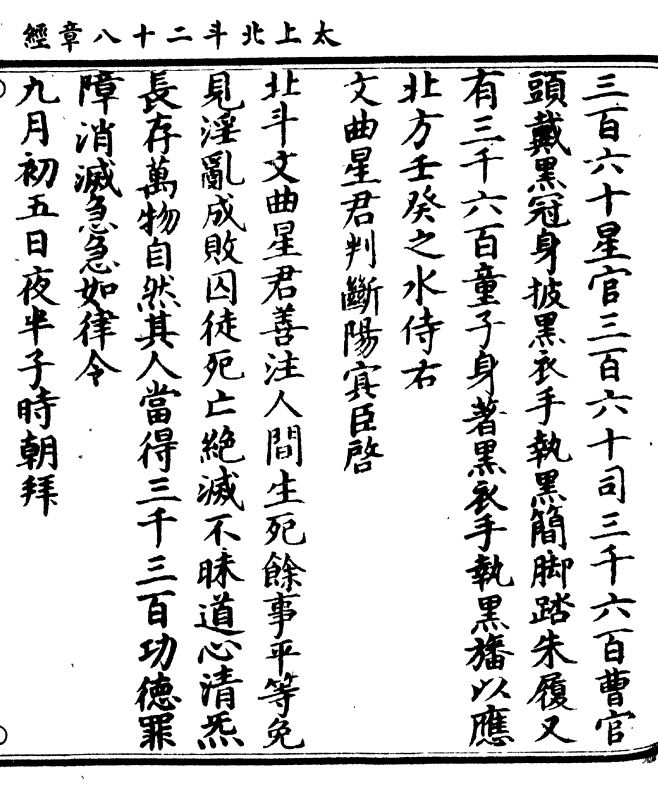 太上北斗二十八章經
三百六十星官三百六十司三千六百曹官
頭戴黑冠身披黑衣手執黑簡脚踏朱履又
有三千六百童子身著黑衣手執黑旛以應
北方壬癸之水侍右
文曲星君判斷陽寘臣啓
北斗文曲星君善注人間生死餘事平等免
見淫亂成敗囚徒死亡絕滅不昧道心清炁
長存萬物自然其人當得三千三百功德罪
障消滅急急如律令
九月初五日夜半子時朝拜